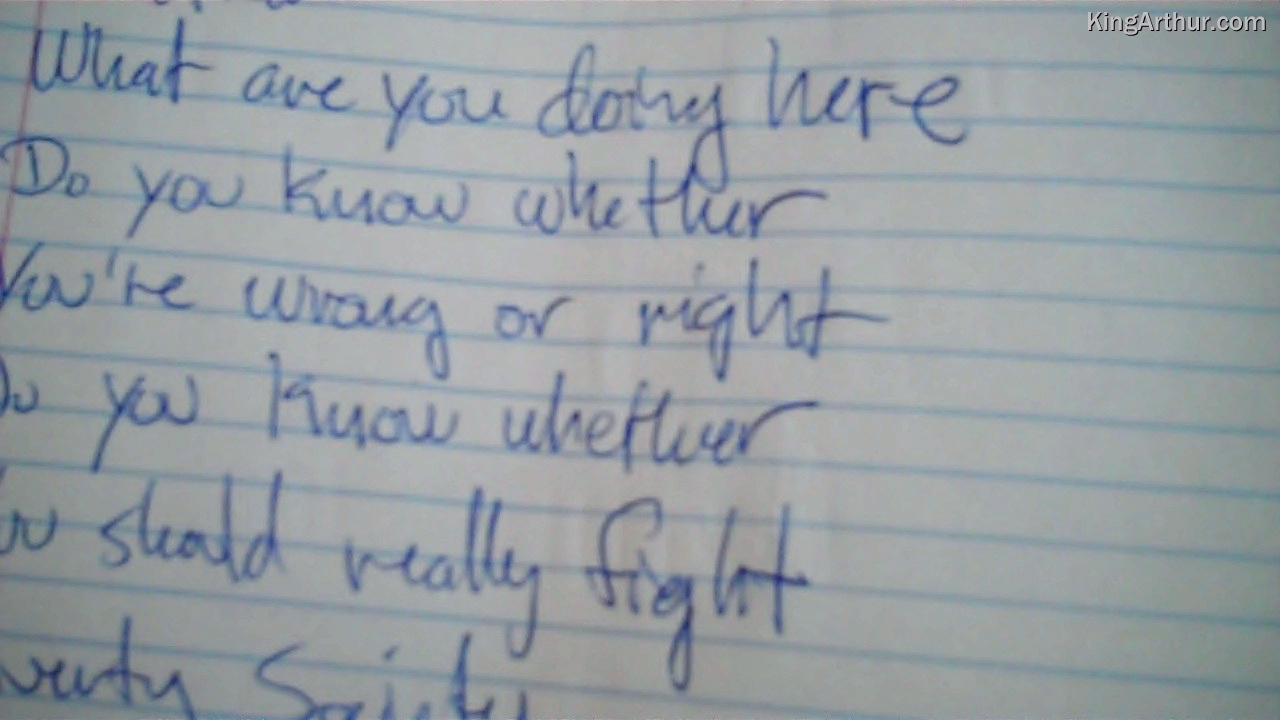 KingArthur.com
What are you doing here
Do you know whether
You're wrong or right
Do you know whether
You should really fight
Society